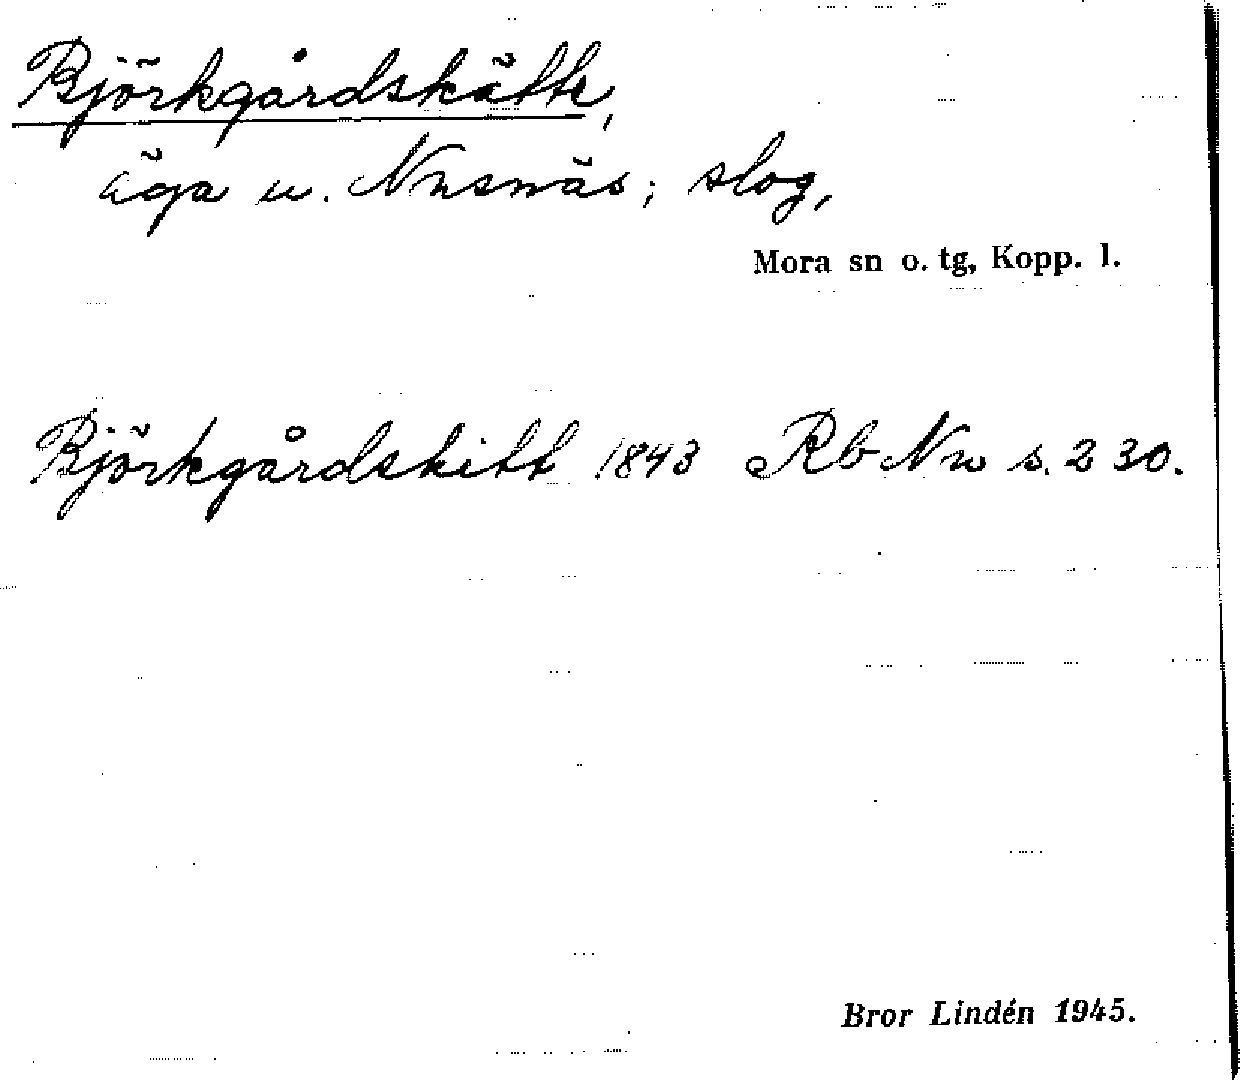 Björkgårdskätte,
äga u. Nusnäs; slog,
Mora sn o. tg, Kopp. l.
Björkgårdskitt 1843 Rb Nu s. 230.
Bror Lindén 1945.